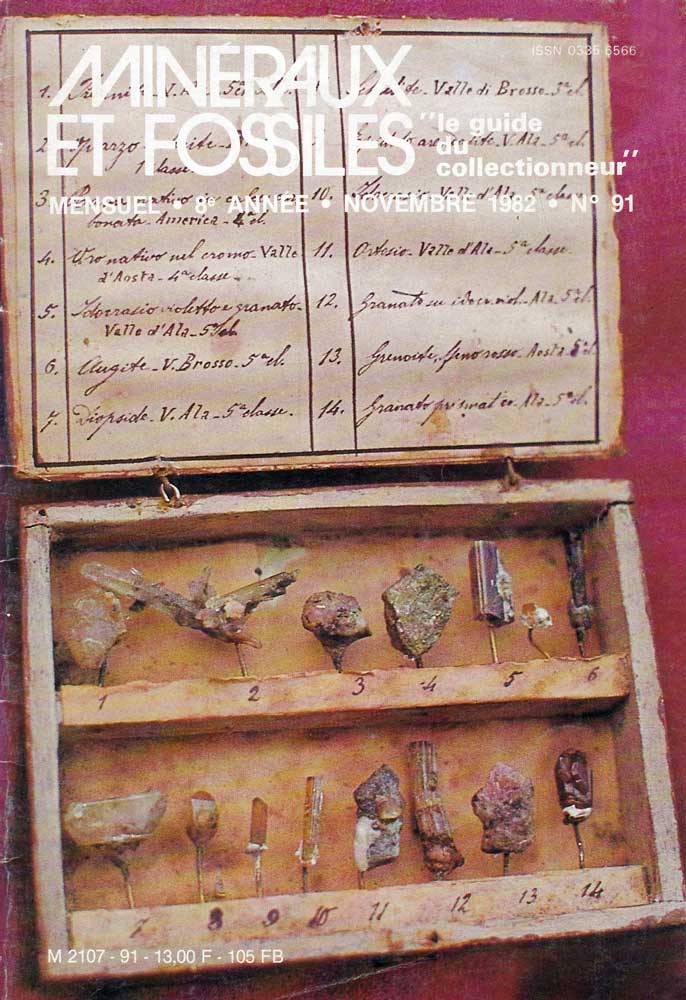 ISSN 0335 6566
MINÉRAUX
ET FOSSILES
"le guide
du
collectionneur"
MENSUEL • 8e ANNÉE • NOVEMBRE 1982 • N° 91
1. V. Ala - 5a
2. Quarzo
1a classe
3. nativo
America - 4a cl.
4. Oro nativo nel cromo - Valle
d'Aosta - 4a classe
5. Idocrasio violetto e granato -
Valle d'Ala - 5a cl.
6. Augite - V. Brosso - 5a cl.
7. Diopside - V. Ala - 5a classe.
Valle di Brosso - 5a cl.
V. Ala - 5a cl.
10. Idocrasio - Valle d'Ala - 5a classe
11. Valle d'Ala - 5a classe.
12. Granato su Ala - 5a cl.
13. rosso - Aosta - 5a cl.
14. Granato Ala - 5a cl.
1 2 3 4 5 6
7 8 9 10 11 12 13 14
M 2107 - 91 - 13,00 F - 105 FB